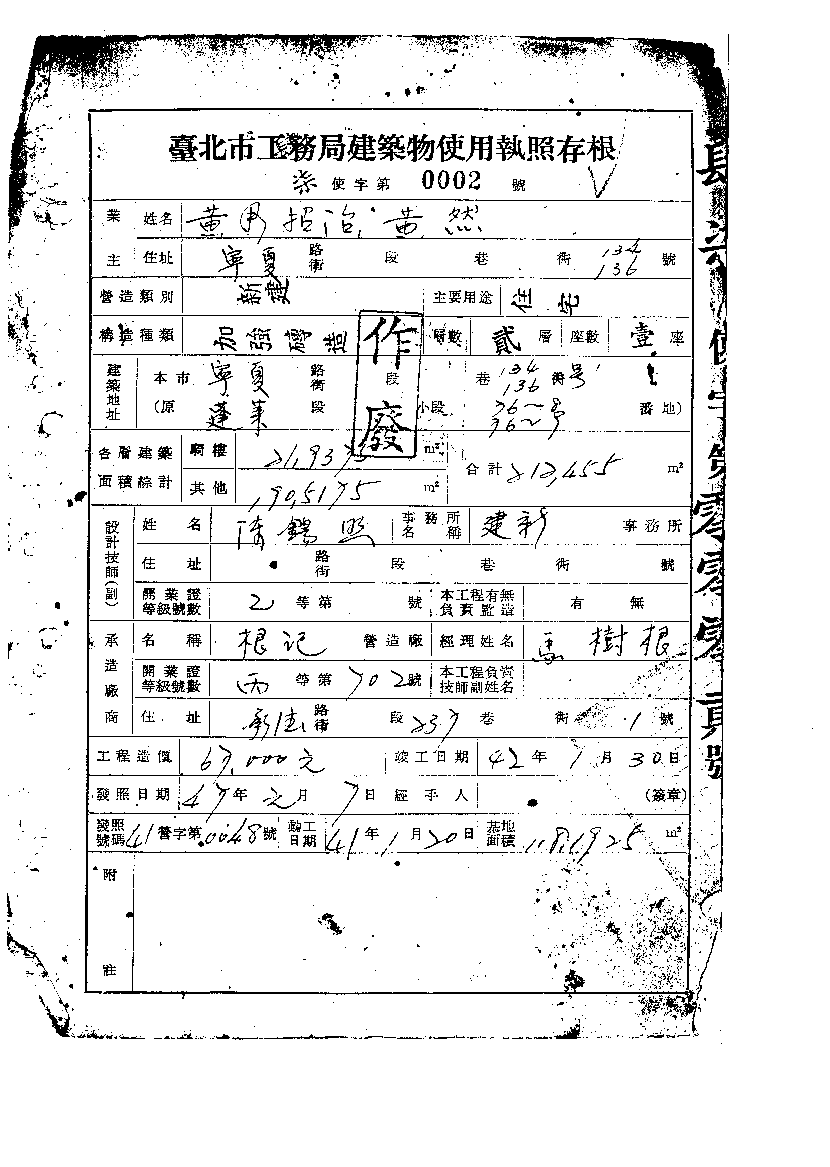 臺北市工務局建築物使用執照存根
柒 使字第 0002 號
業主 姓名 黃 招治 黃 然
住址 寧夏 路街 段 巷 衖 134 136 號
營造類別 新建 主要用途 住宅
構造種類 加強磚造 層數 貳 層 座數 壹 座
作廢
建築地址 本市 寧夏 路街 段 巷 134 136 衖 號
(原 蓬萊 段 小段 番地)
各層建築面積綜計 騎樓 m² 合計 m²
其他 m²
設計技師(副) 姓名 陳錫照 事務所名稱 建新 事務所
住址 路街 段 巷 衖 號
開業證等級號數 乙 等第 號 本工程有無負責監造 有 無
承造廠商 名稱 根記 營造廠 經理姓名 馬樹根
開業證等級號數 丙 等第 702 號 本工程負責技師副姓名
住址 承德 路街 段 237 巷 衖 1 號
工程造價 67,000元 竣工日期 42年 7月30日
發照日期 47年元月7日 經手人 (簽章)
發照號碼 41營字第0048號 動工日期 41年1月20日 基地面積 m²
附註
使字第零零零貳號